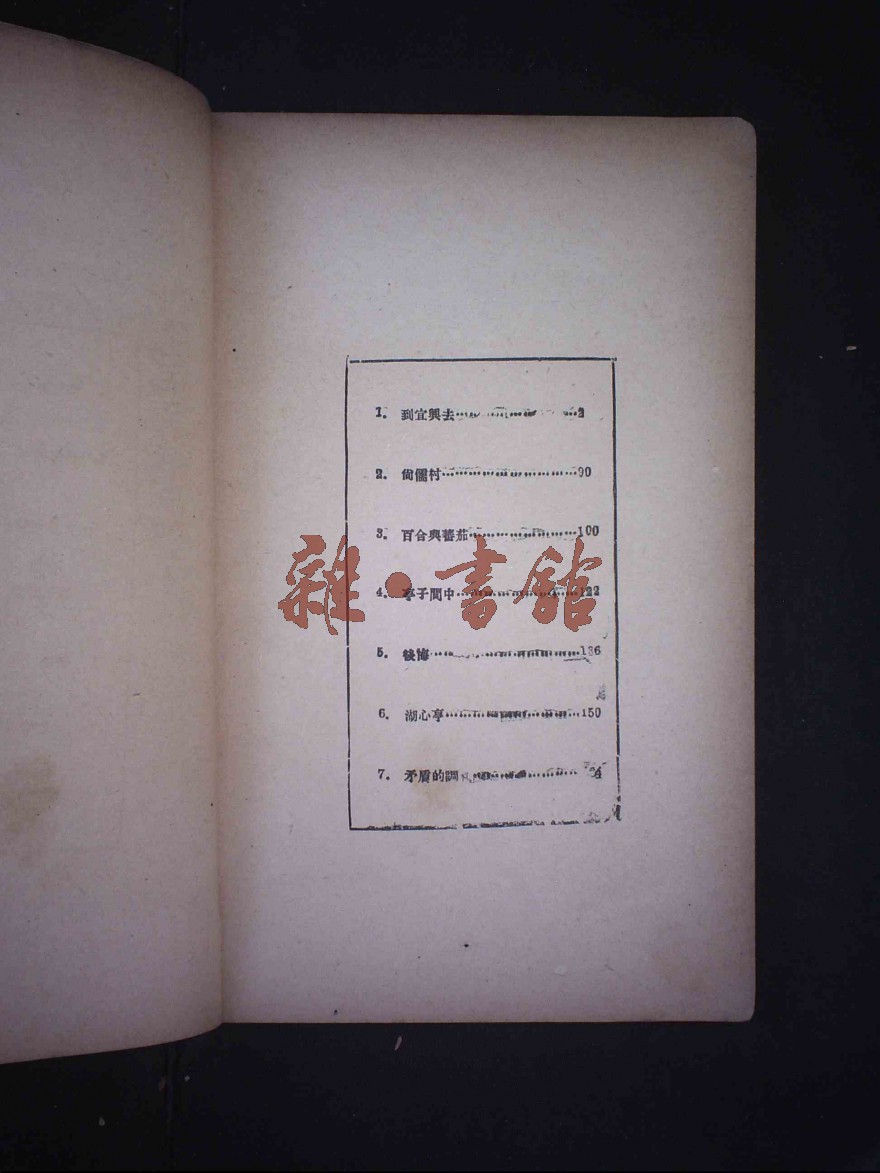 1. 到宜興去……2
2. 尙儒村……90
3. 百合與蕃茄……100
4. 亭子間中……122
5. 後悔……136
6. 湖心亭……150
7. 矛盾的調
雜·書館